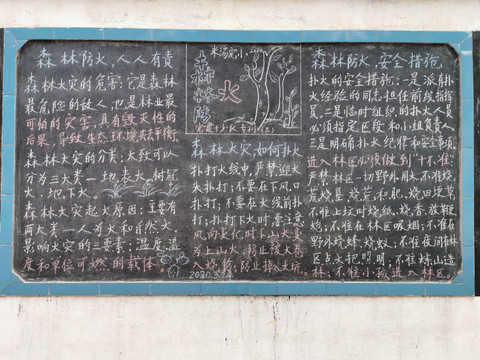 森林防火,人人有责
森林火灾的危害:它是森林
最危险的敌人,也是林业最
可怕的灾害,具有毁灭性的
后果,导致生态环境失去平衡
森林火灾的分类:大致可以
分为三大类一地表火、树冠
火、地下火。
森林火灾起火原因:主要有
两大类一人为火和自然火。
影响火灾的三要素:温度、温
度和单位可燃的载体。
米汤完小
森林防火
森林火灾,如何扑火
扑打火线中,严禁迎火
头扑打;不要在下风口
扑打;不要在火线前扑
打;扑打下火时,要注意
风向变化时下山火
为上山火,防止被火
2020.3
森林防火,安全措施
扑火的安全措施:一是派有扑
火经验的同志担任前线指挥
员,二是临时组织的扑火人员
必须指定区段和小组负责人,
三是明确扑火纪律和安全事项
进入林区必须做到"十不准":
严禁林区一切野外用火,不准烧
荒、烧垦、烧荒、积肥、烧田埂草,
不准上坟时烧纸、烧香、放鞭
炮;不准在林区吸烟;不准在
野外烧蜂、烧蚁;不准夜间在林
区点火把照明;不准炼山造
林;不准小孩进入林区。